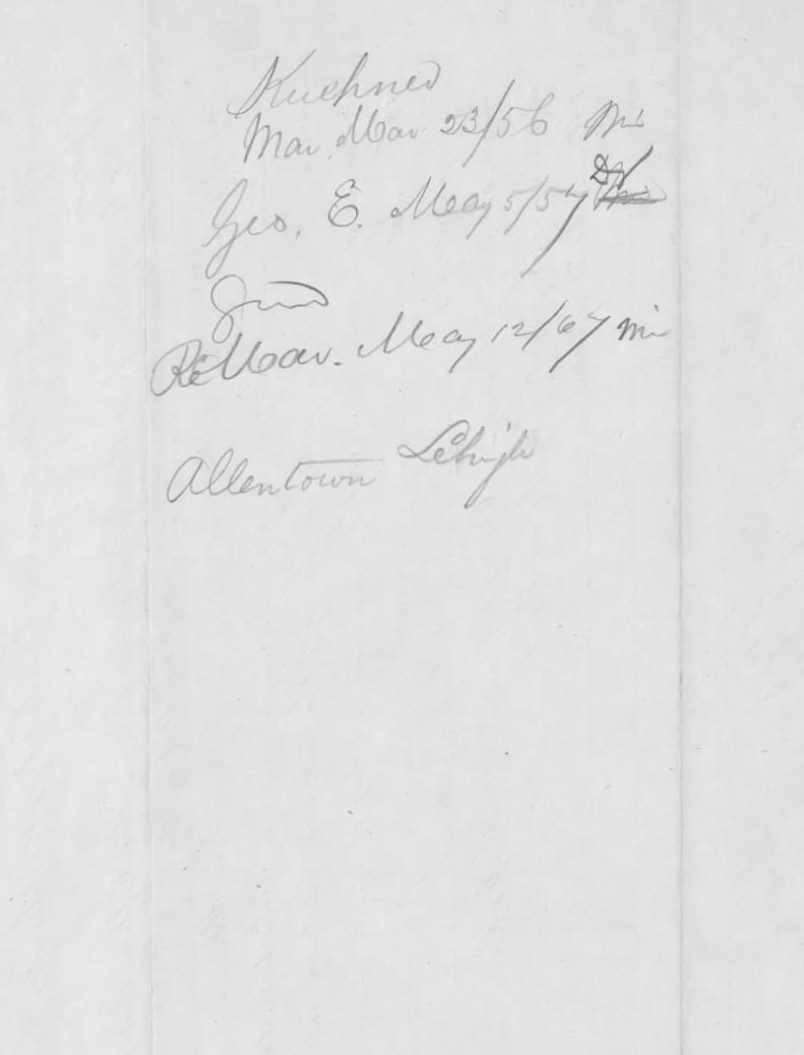 Kuehner
Mar. Mar 23/56 Mi
Geo. E. May 5/57 DN
ReMar. May 12/67 Mi
Allentown Lehigh